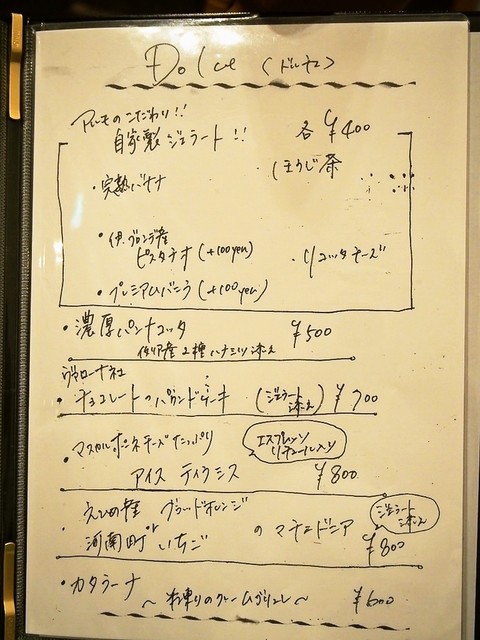 Dolce 〈ドルチェ〉
アルモのこだわり!!
自家製ジェラート!! 各¥400
・完熟バナナ ほうじ茶
・伊.ブロンテ産
ピスタチオ(+100yen) ・リコッタチーズ
・プレミアムバニラ(+100yen)
・濃厚パンナコッタ ¥500
イタリア産2種ハチミツ添え
ヴァローナ社
・チョコレートのパウンドケーキ (ジェラート添え) ¥700
・マスカルポーネチーズたっぷり エスプレッソリキュール入り
アイスティラミス ¥800
・えひめ産 ブラッドオレンジ
河南町 いちご のマチェドニア ジェラート添え ¥800
・カタラーナ
〜半凍りのクレームブリュレ〜 ¥600